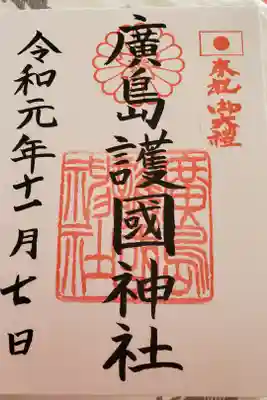 奉祝 御大禮
廣島護國神社
廣島
神社
令和元年十一月七日